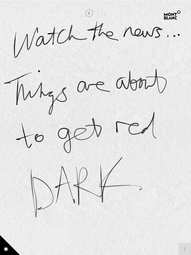 MONT
BLANC
Watch the news...
Things are about
to get red
DARK.